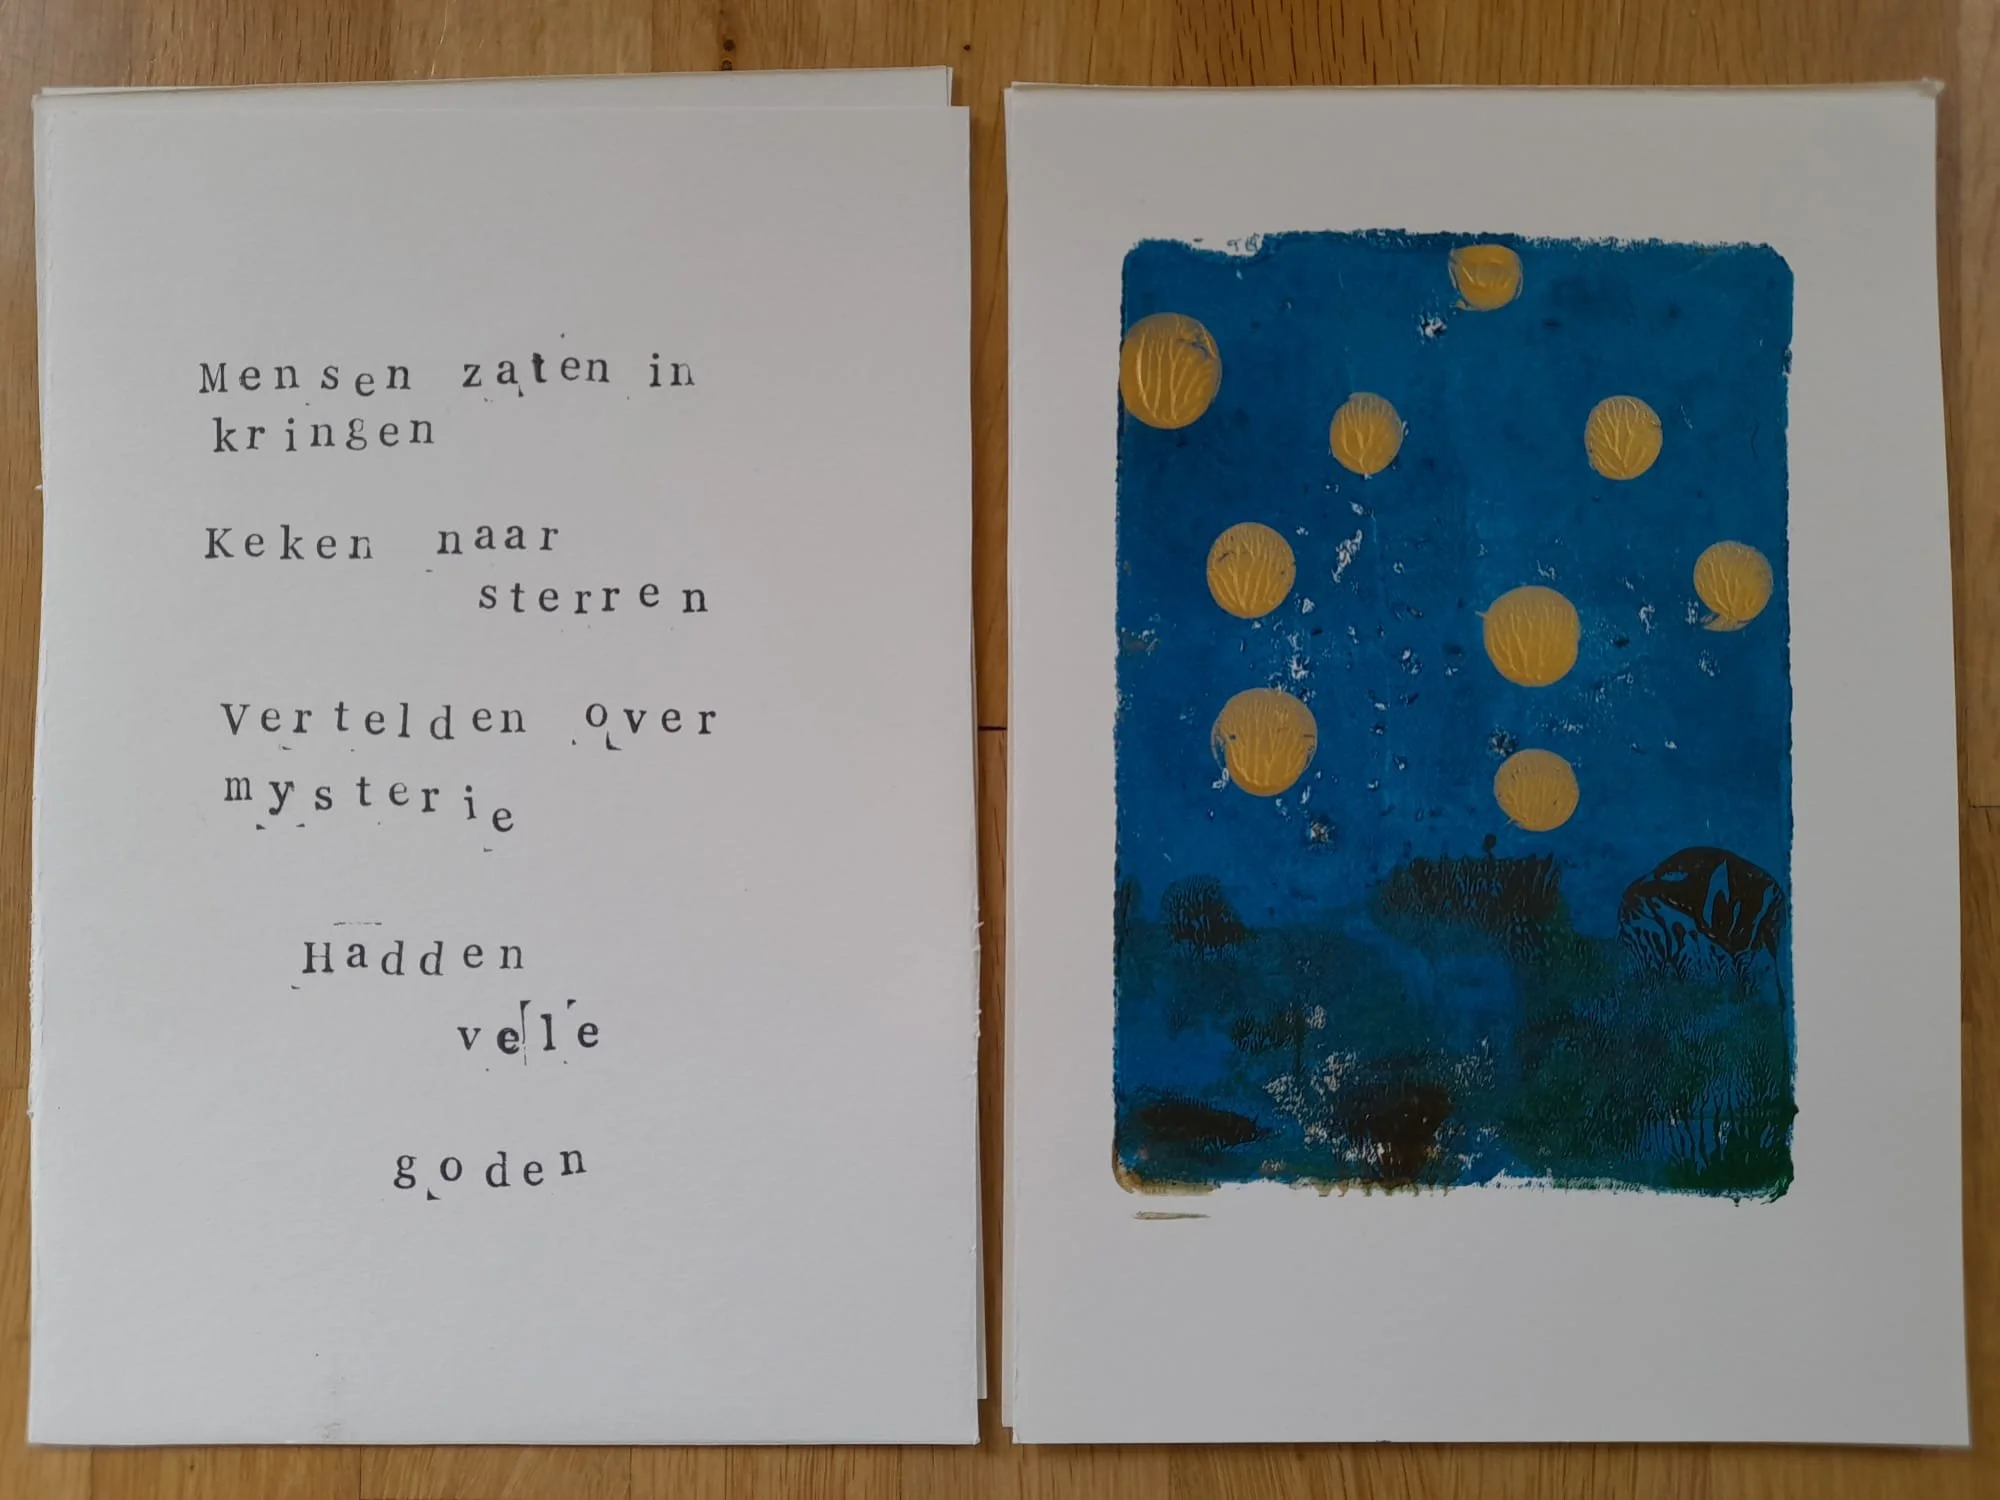 Mensen zaten in
kringen
Keken naar
sterren
Vertelden over
mysterie
Hadden
vele
goden